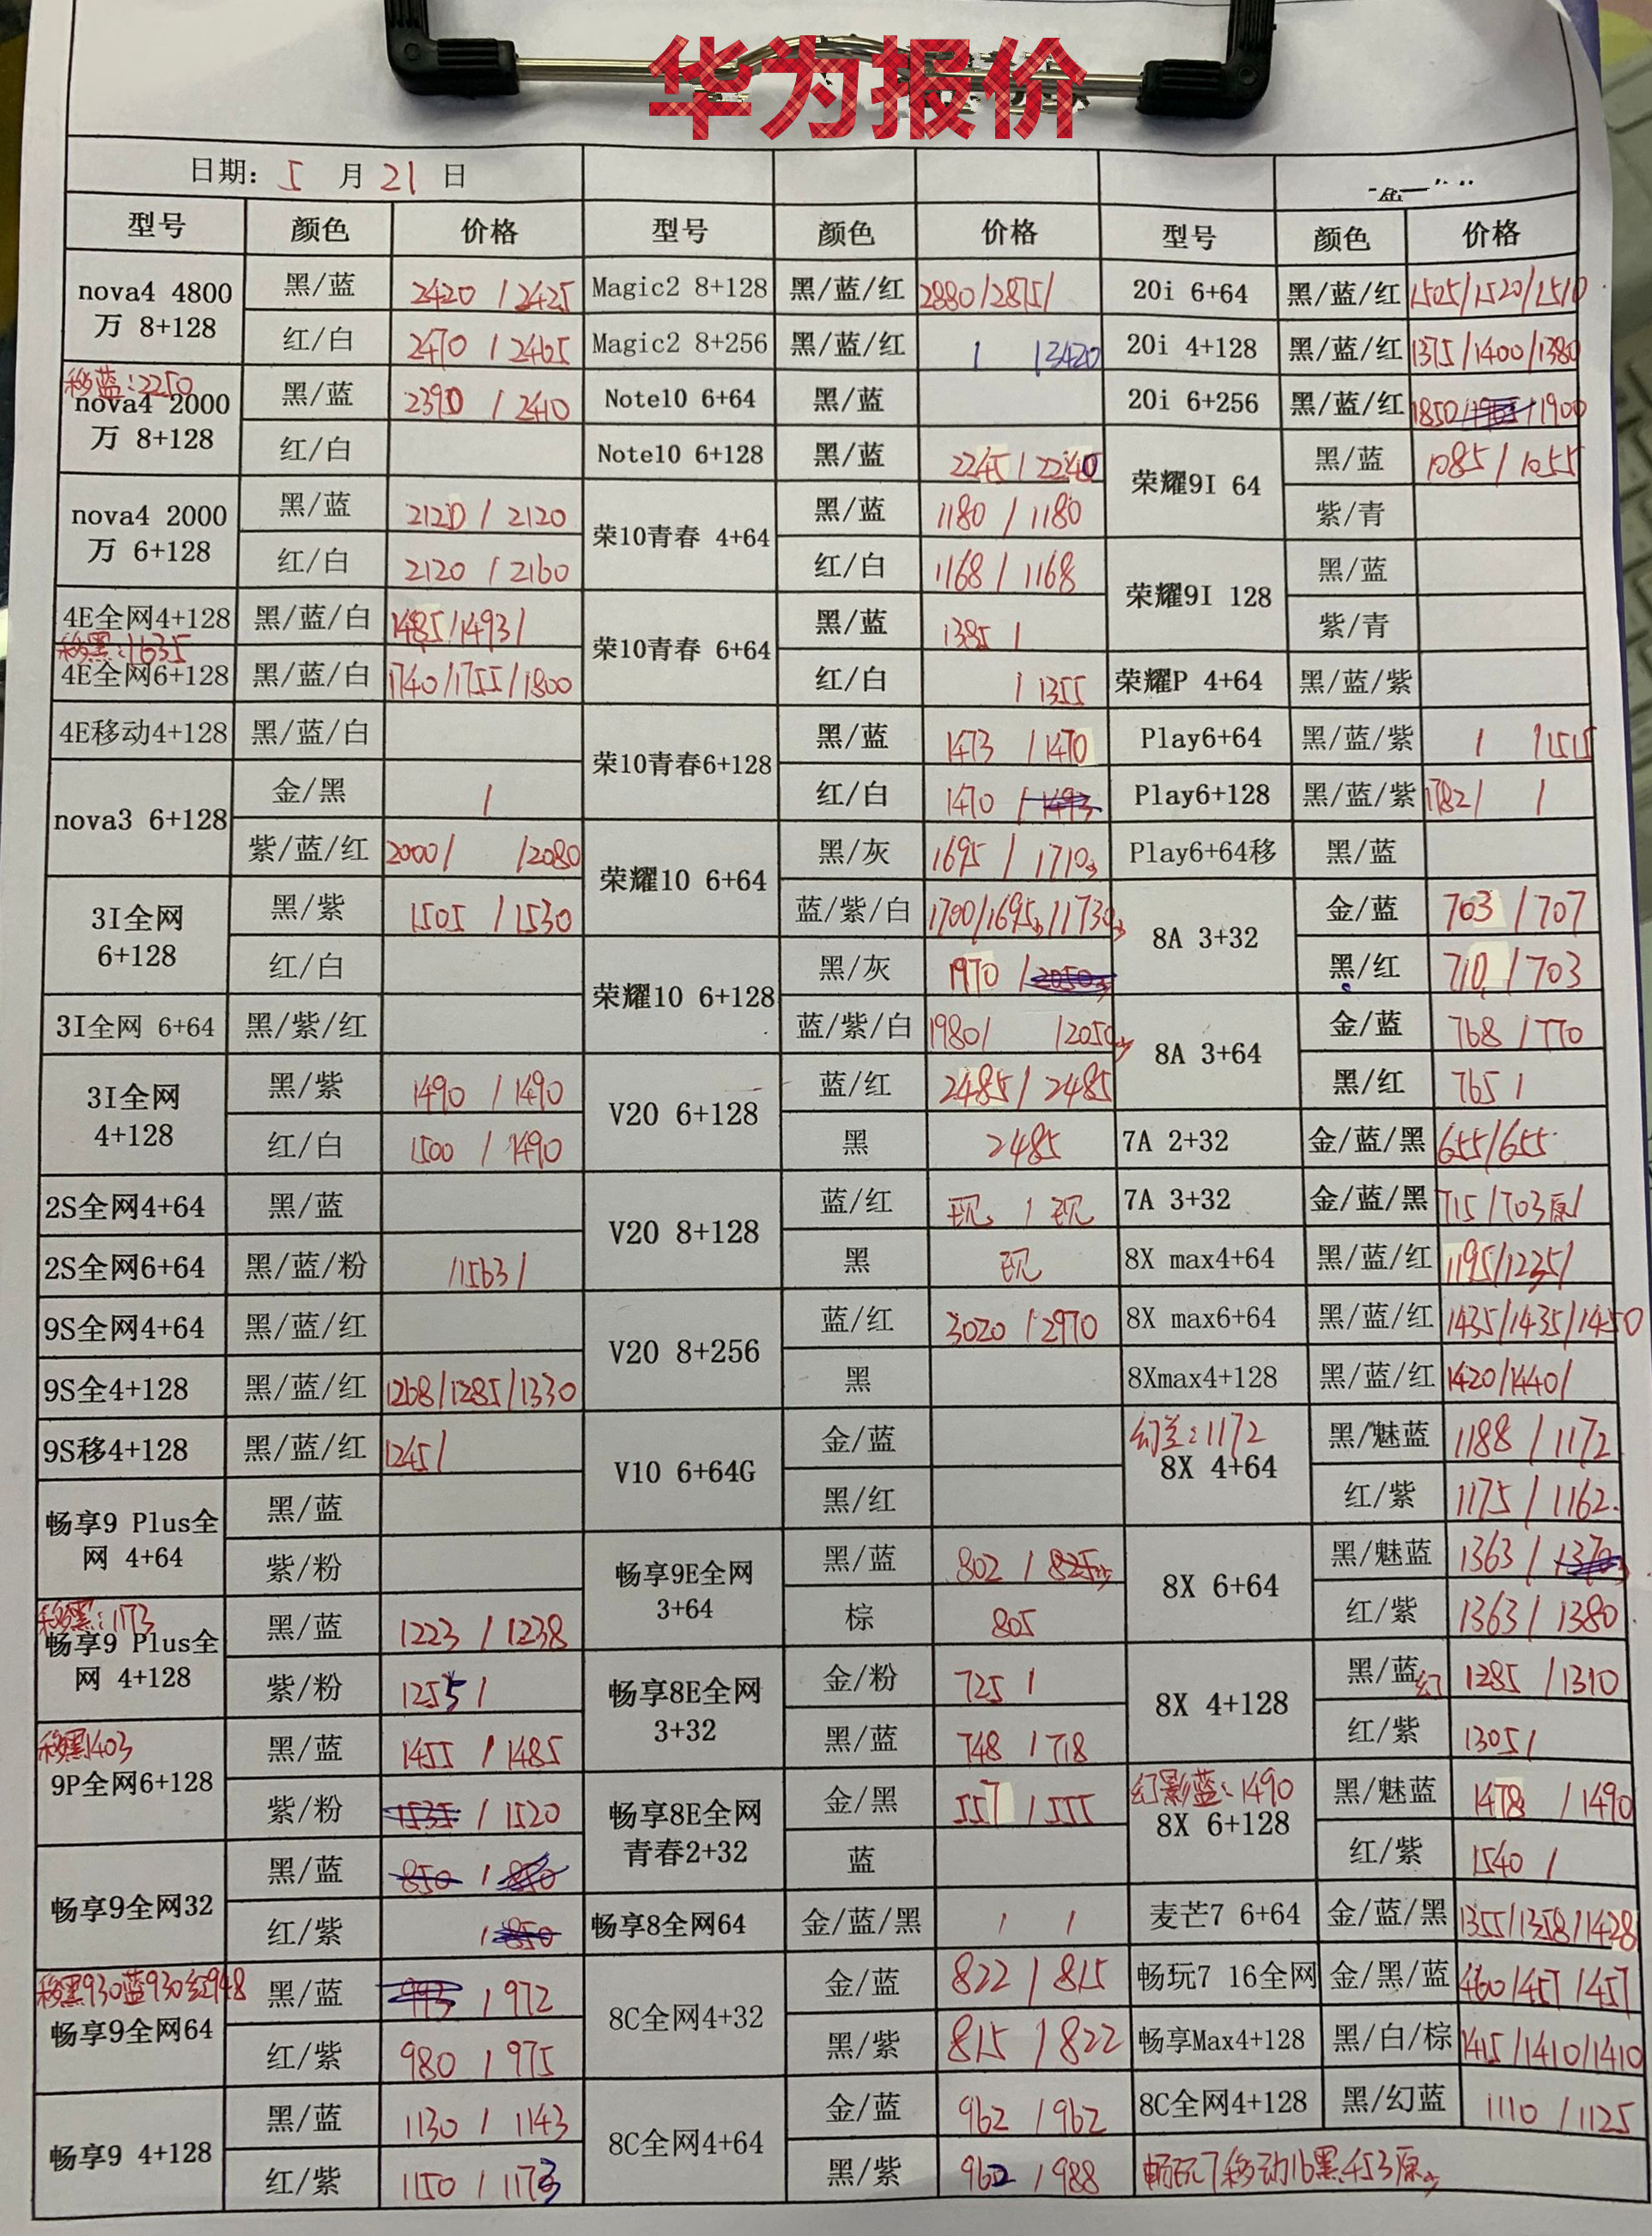 华为报价
日期: 5 月 21 日
型号 颜色 价格 型号 颜色 价格 型号 颜色 价格
nova4 4800万 8+128 黑/蓝 2420 / 2425 Magic2 8+128 黑/蓝/红 2880/2875/ 20i 6+64 黑/蓝/红 1505/1520/1510
红/白 2470 / 2465 Magic2 8+256 黑/蓝/红 / /3420 20i 4+128 黑/蓝/红 1375/1400/1380
移蓝:2250
nova4 2000万 8+128 黑/蓝 2390 / 2410 Note10 6+64 黑/蓝 20i 6+256 黑/蓝/红 1850/ /1900
红/白 Note10 6+128 黑/蓝 2245 / 2240 荣耀9I 64 黑/蓝 1085 / 1055
nova4 2000万 6+128 黑/蓝 2120 / 2120 荣10青春 4+64 黑/蓝 1180 / 1180 紫/青
红/白 2120 / 2160 红/白 1168 / 1168 荣耀9I 128 黑/蓝
4E全网4+128 黑/蓝/白 1485/1493/ 荣10青春 6+64 黑/蓝 1385 / 紫/青
移黑:1635
4E全网6+128 黑/蓝/白 1740/1755/1800 红/白 / 1355 荣耀P 4+64 黑/蓝/紫
4E移动4+128 黑/蓝/白 荣10青春6+128 黑/蓝 1473 / 1470 Play6+64 黑/蓝/紫 / /1515
nova3 6+128 金/黑 / 红/白 1470 / 1493 Play6+128 黑/蓝/紫 1782/ /
紫/蓝/红 2000/ /2080 荣耀10 6+64 黑/灰 1695 / 1710 Play6+64移 黑/蓝
3I全网 6+128 黑/紫 1505 / 1530 蓝/紫/白 1700/1695/1730 8A 3+32 金/蓝 703 / 707
红/白 荣耀10 6+128 黑/灰 1970 / 2050 黑/红 710 / 703
3I全网 6+64 黑/紫/红 蓝/紫/白 1980/ /2050 8A 3+64 金/蓝 768 / 770
3I全网 4+128 黑/紫 1490 / 1490 V20 6+128 蓝/红 2485 / 2485 黑/红 765 /
红/白 1500 / 1490 黑 2485 7A 2+32 金/蓝/黑 655/655
2S全网4+64 黑/蓝 V20 8+128 蓝/红 现 / 现 7A 3+32 金/蓝/黑 715 / 703原/
2S全网6+64 黑/蓝/粉 /1563/ 黑 现 8X max4+64 黑/蓝/红 1195/1235/
9S全网4+64 黑/蓝/红 V20 8+256 蓝/红 3020 / 2970 8X max6+64 黑/蓝/红 1435/1435/1450
9S全4+128 黑/蓝/红 1268/1285/1330 黑 8Xmax4+128 黑/蓝/红 1420/1440/
9S移4+128 黑/蓝/红 1245/ V10 6+64G 金/蓝 幻兰:1172
8X 4+64 黑/魅蓝 1188 / 1172
畅享9 Plus全网 4+64 黑/蓝 黑/红 红/紫 1175 / 1162
紫/粉 畅享9E全网 3+64 黑/蓝 802 / 825 8X 6+64 黑/魅蓝 1363 / 1370
移黑:1173
畅享9 Plus全网 4+128 黑/蓝 1223 / 1238 棕 805 红/紫 1363 / 1380
紫/粉 1255 / 畅享8E全网 3+32 金/粉 725 / 8X 4+128 黑/蓝幻 1285 / 1310
移黑1403
9P全网6+128 黑/蓝 1455 / 1485 黑/蓝 748 / 718 红/紫 1305 /
紫/粉 1535 / 1520 畅享8E全网青春2+32 金/黑 557 / 555 幻影蓝:1490
8X 6+128 黑/魅蓝 1478 / 1490
畅享9全网32 黑/蓝 850 / 850 蓝 红/紫 1540 /
红/紫 / 850 畅享8全网64 金/蓝/黑 / / 麦芒7 6+64 金/蓝/黑 1355/1358/1428
移黑930蓝930红948
畅享9全网64 黑/蓝 / 972 8C全网4+32 金/蓝 822 / 815 畅玩7 16全网 金/黑/蓝 460/457/457
红/紫 980 / 975 黑/紫 815 / 822 畅享Max4+128 黑/白/棕 1415/1410/1410
畅享9 4+128 黑/蓝 1130 / 1143 8C全网4+64 金/蓝 962 / 962 8C全网4+128 黑/幻蓝 1110 / 1125
红/紫 1150 / 1173 黑/紫 962 / 988 畅玩7移动16黑:453原